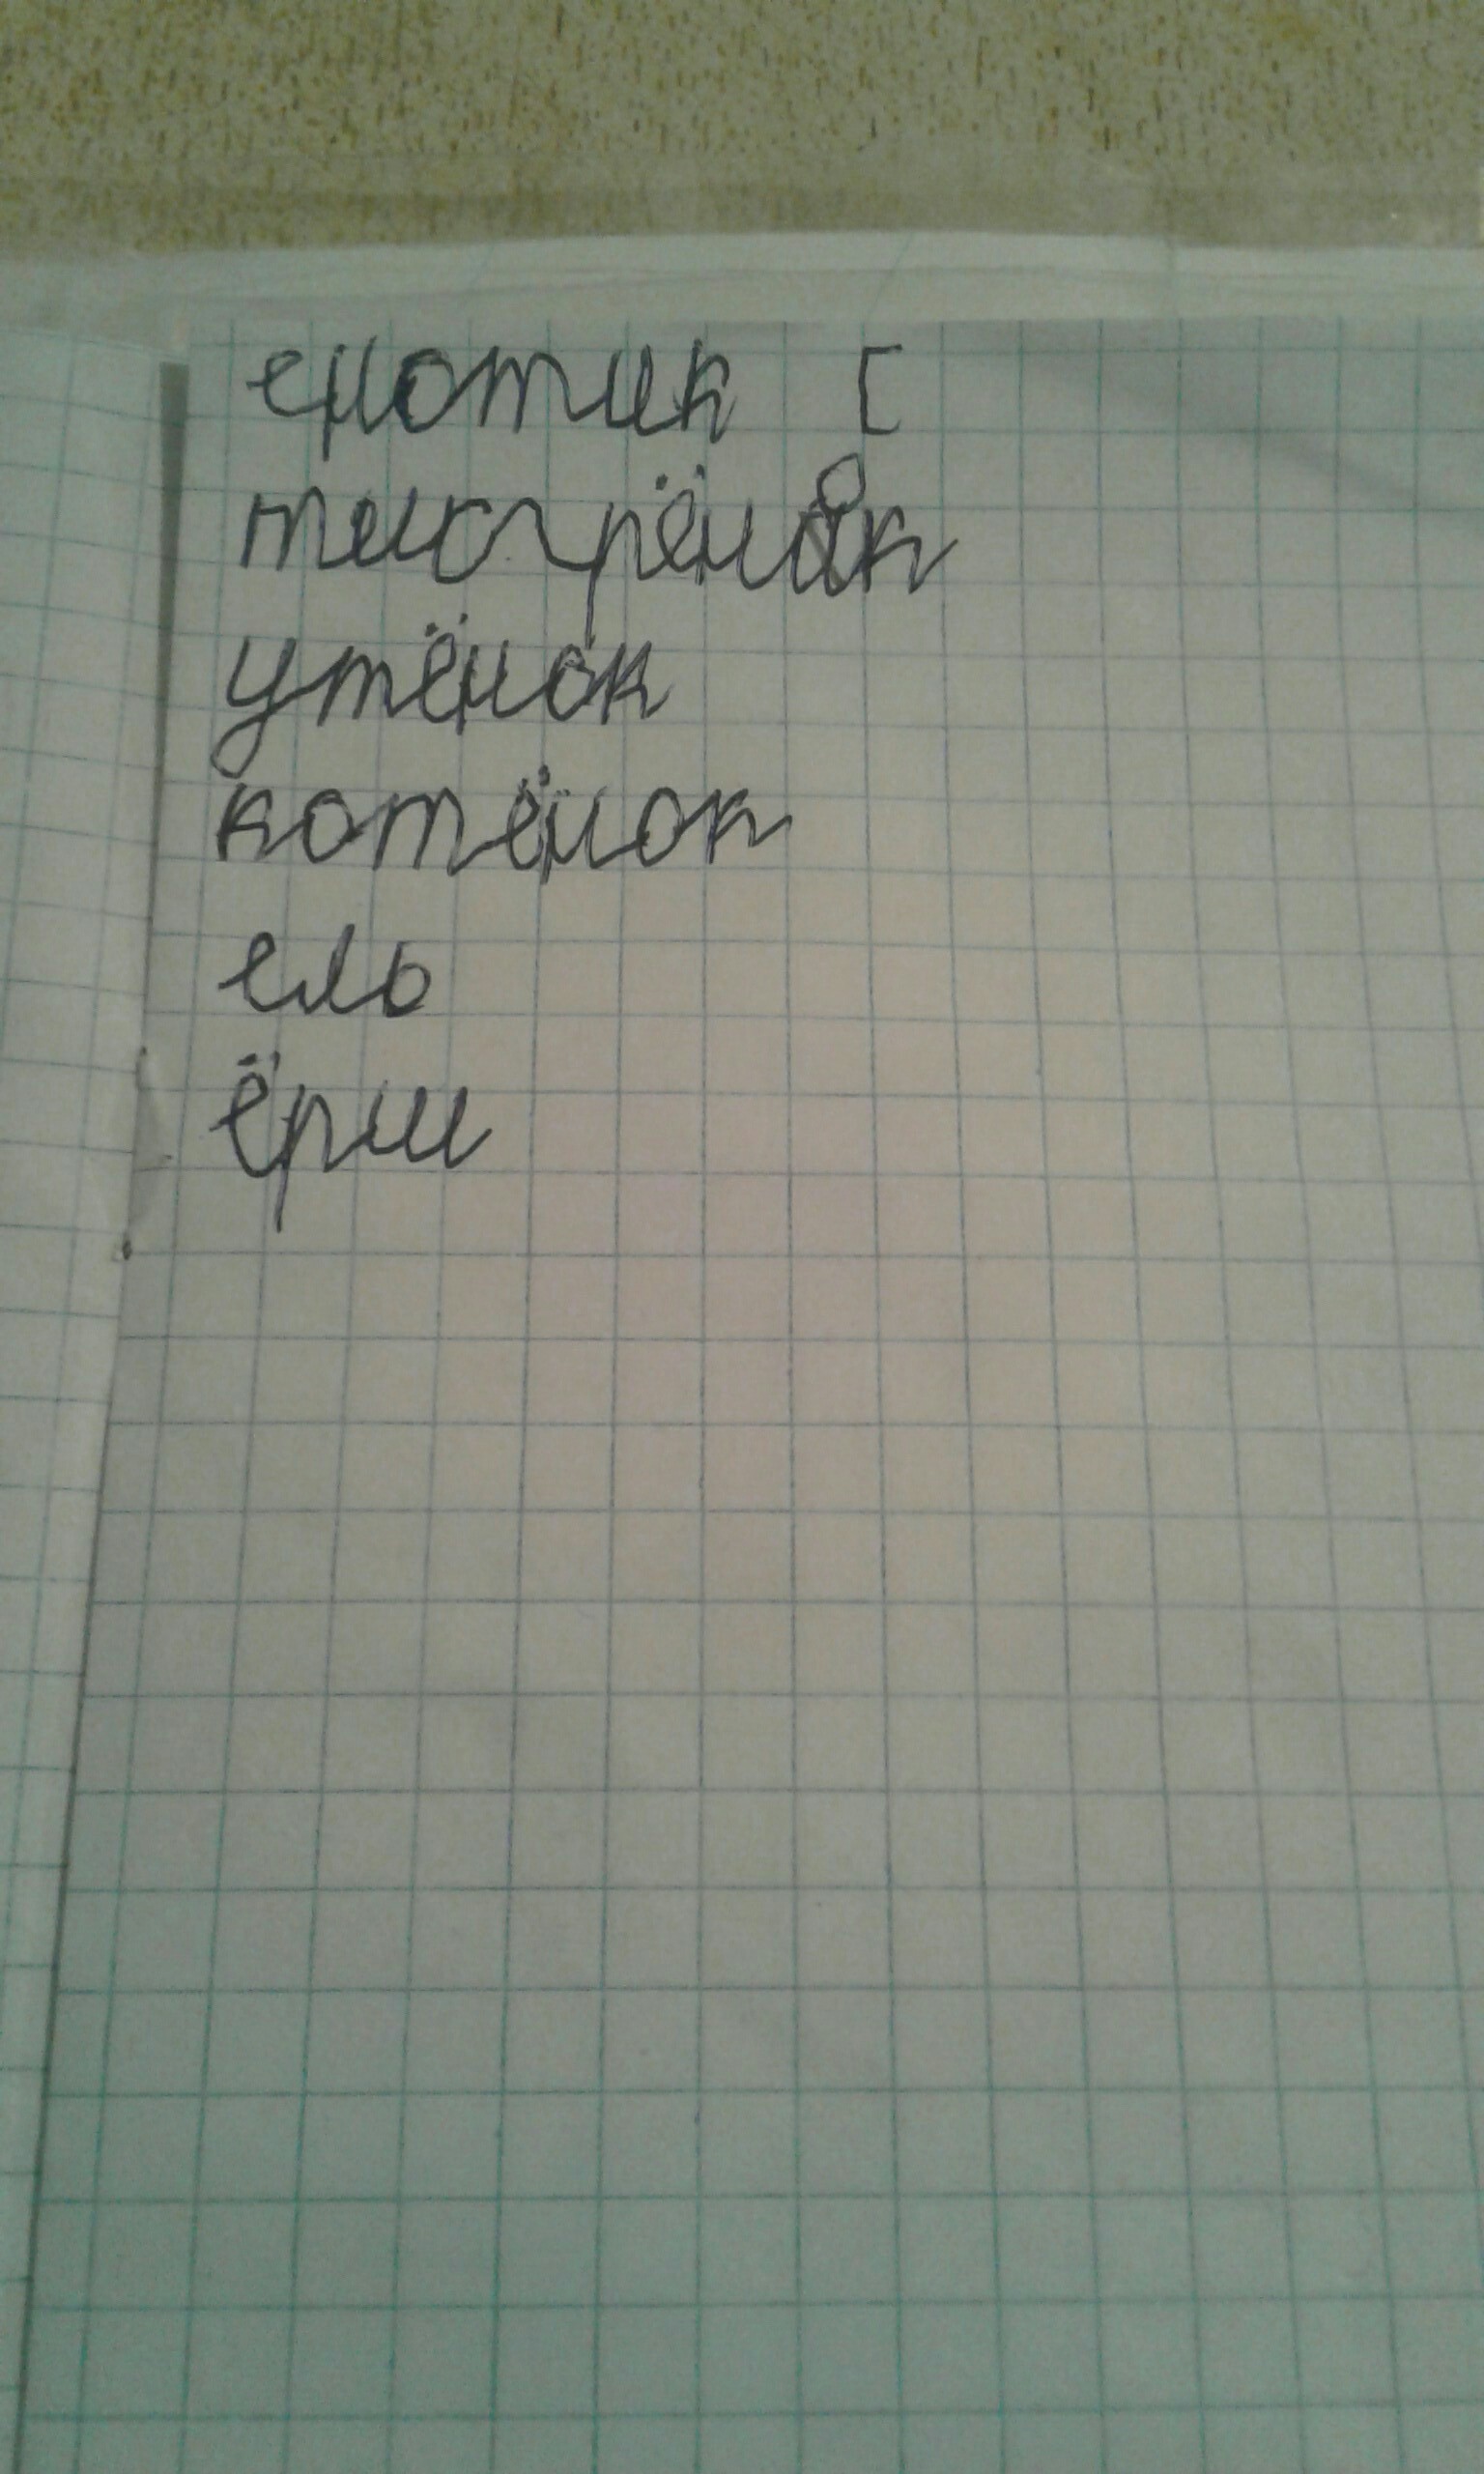 енотик [
тигрёнок
утёнок
котёнок
ель
ёрш